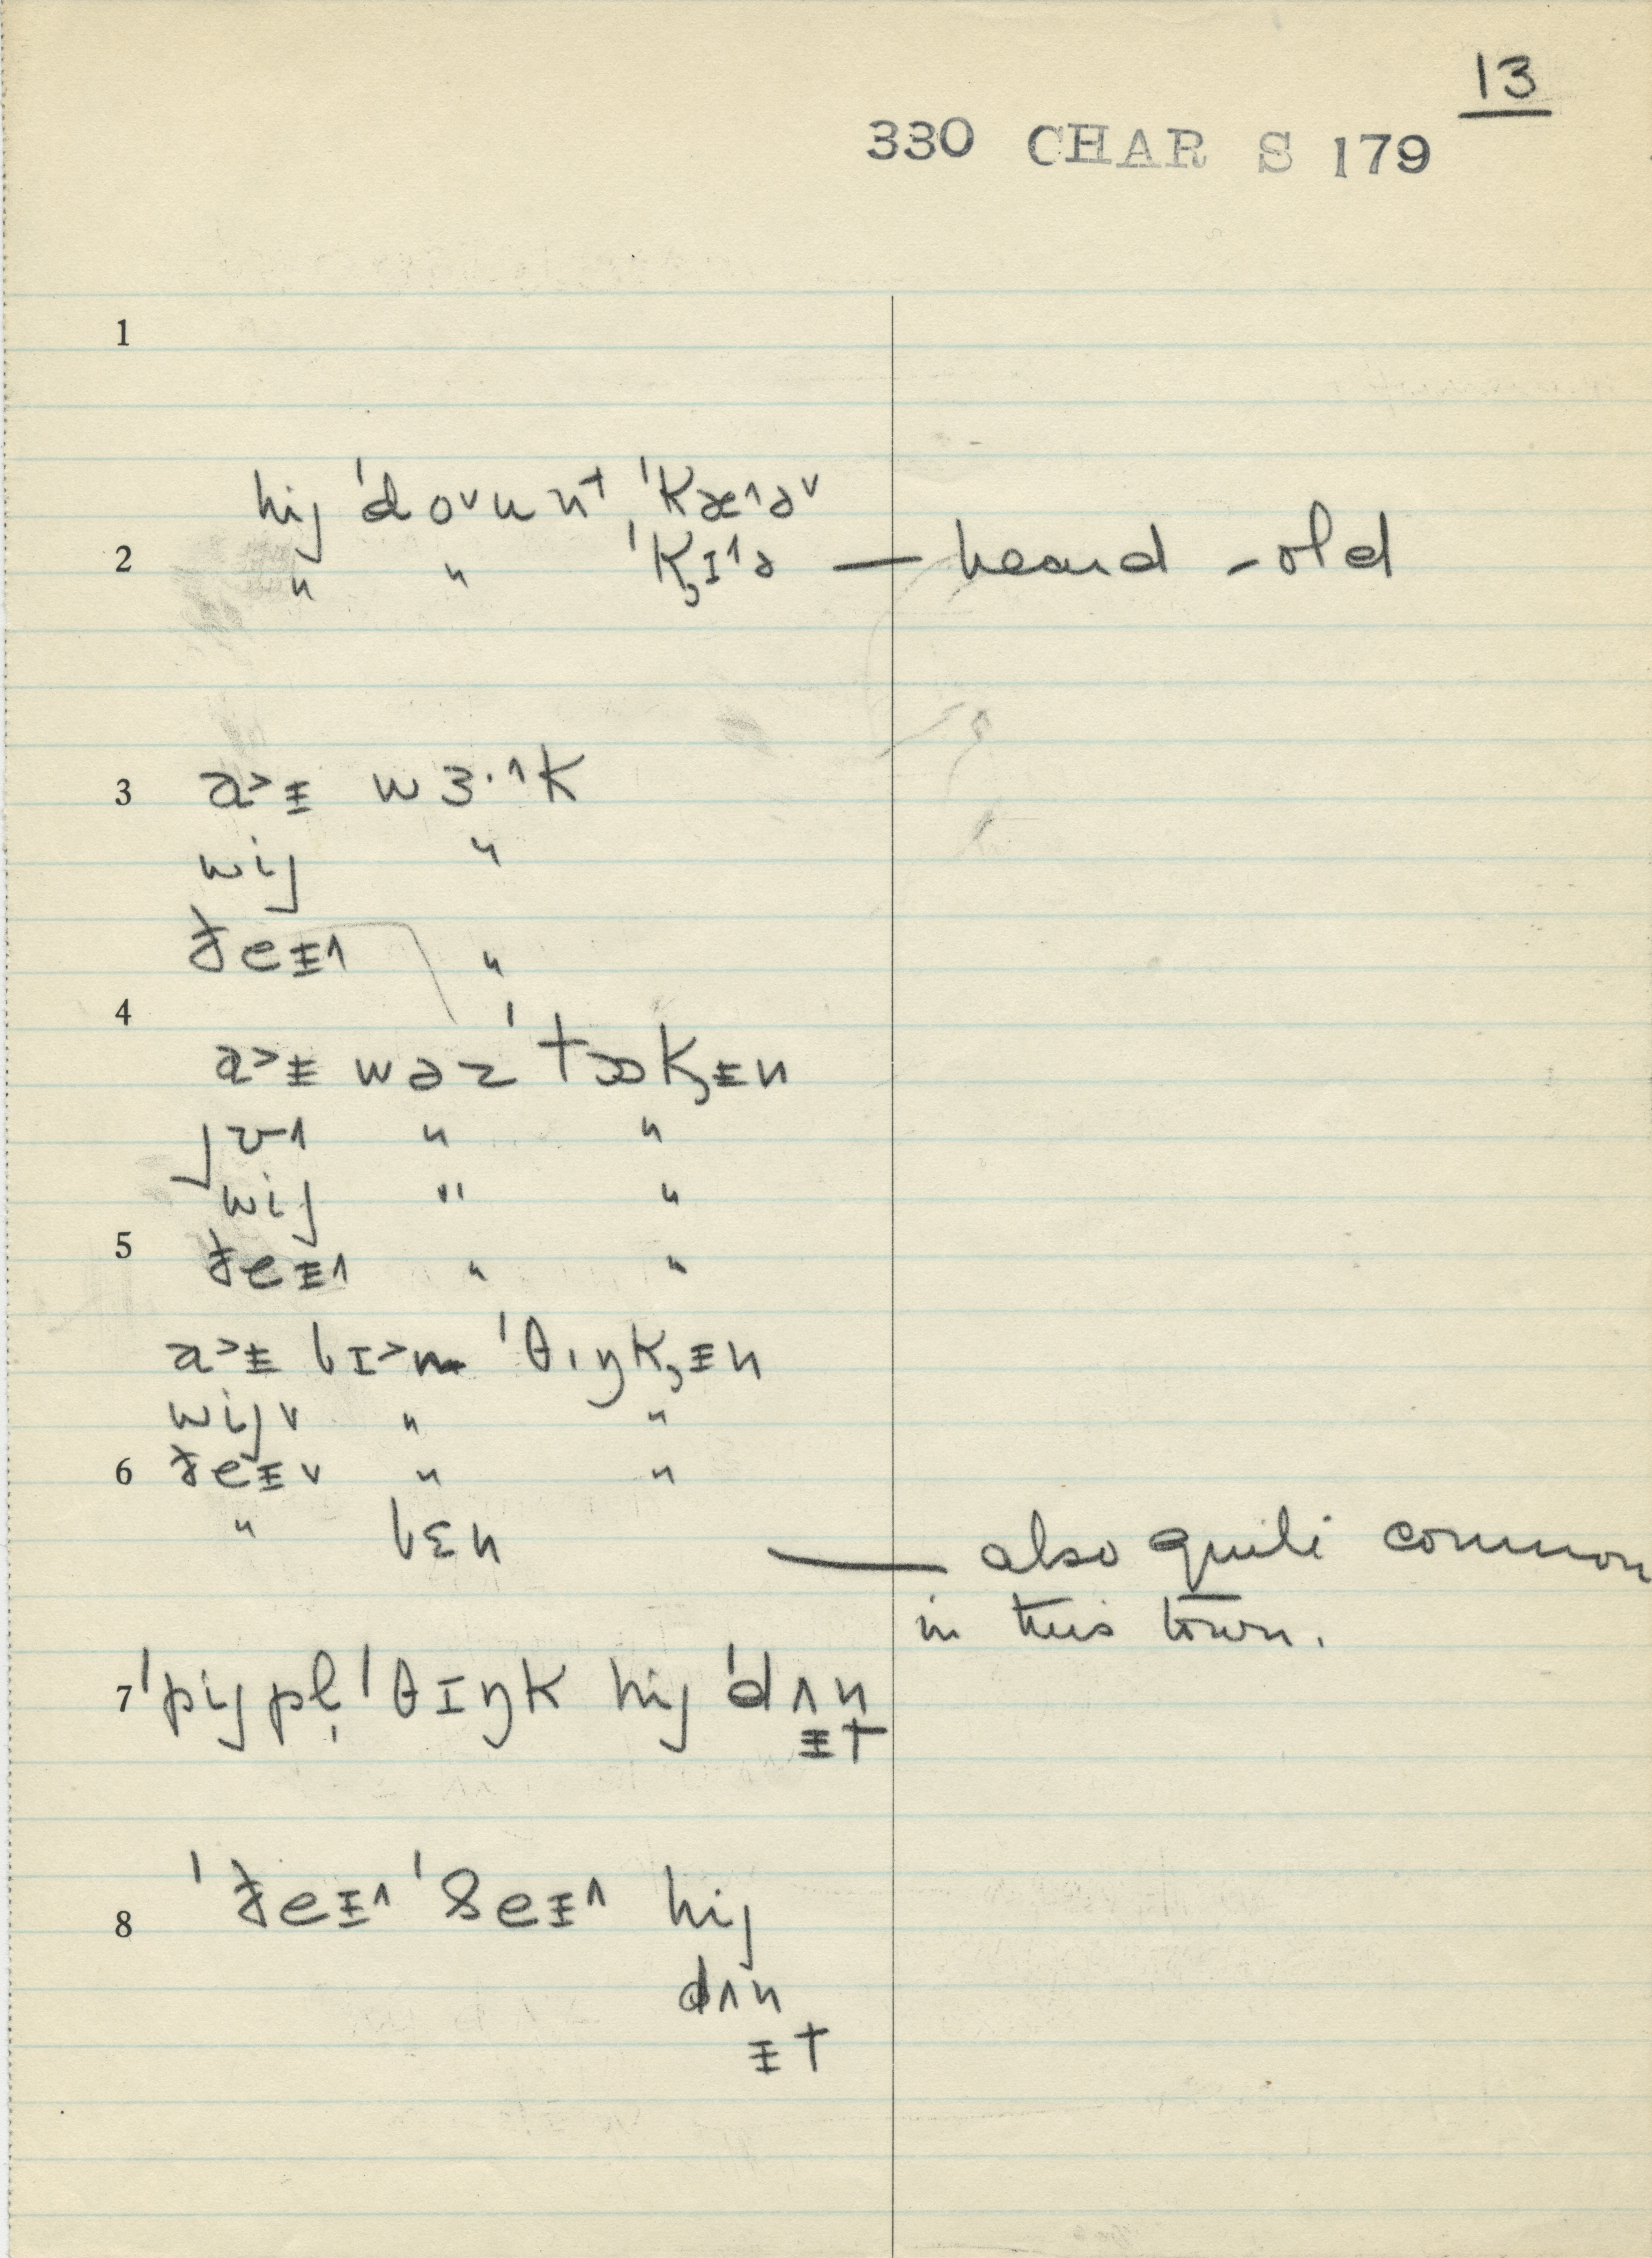 13
330 CHAR S 179
1
hij ˈdo˅unt ˈkæ˄ə˅
2 〃 〃 ˈk̡ɪ˄ə — heard - old
3 a˃ᵻ wɜ·˄k
wij 〃
ðeᵻ˄ 〃
4
a˃ᵻ wəz ˈtɔk̡ᵻn
jʊ˄ 〃 〃
wij 〃 〃
5 ðeᵻ˄ 〃 〃
a˃ᵻ bɪ˃n ˈθɪŋk̡ᵻn
wijv 〃 〃
6 ðeᵻv 〃 〃
〃 bɛn — also quite common
in this town.
7 ˈpijpl̩ ˈθɪŋk hij ˈdʌn
ᵻt
8 ˈðeᵻ˄ ˈseᵻ˄ hij
dʌn
ᵻt